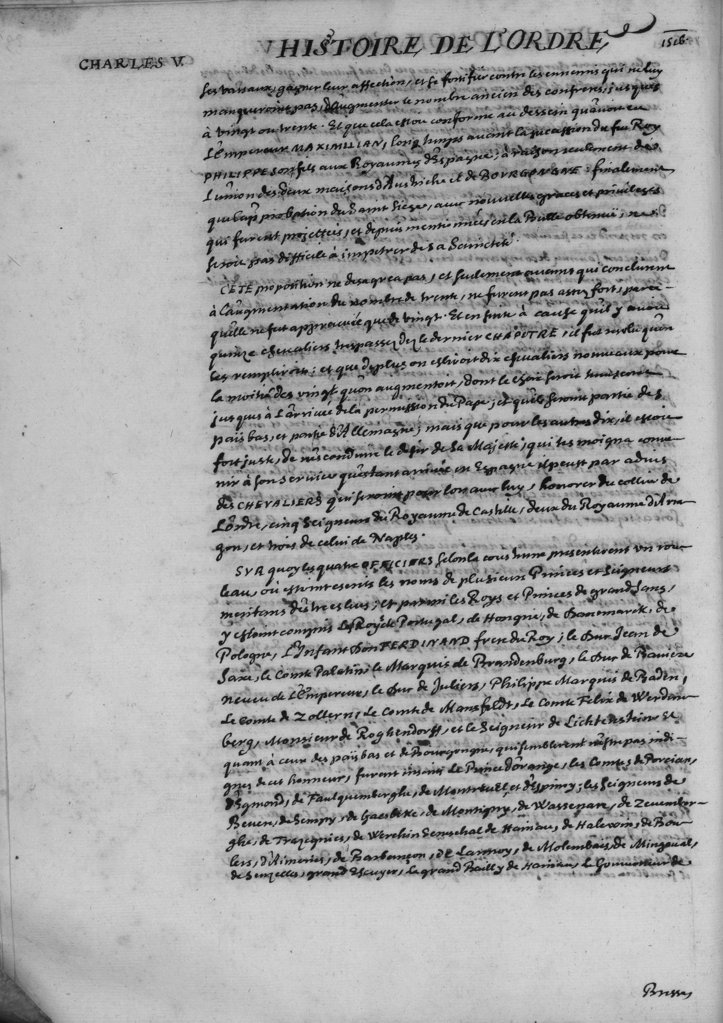 HISTOIRE DE L'ORDRE
1516.
CHARLES V.
ses vassaux, gagner leur affection, et se fortifir contre les ennemis qui ne luy
manqueroient pas, d'augmenter le nombre ancien des confreres, jusques
à vingt ou trente. Et que cela estoit conforme au dessein qu'avoit eu
L'Empereur MAXIMILIAN, long temps avant la succession du feu Roy
PHILIPPE son fils aux Royaumes d'Espagne; à raison seulement de
L'union des deux maisons d'Austriche et de BOURGONGNE: finalement
que l'approbation du Saint Siege, aux nouvelles graces et privileges
qui furent projettées, et depuis mentionnées en la Bulle obtenue, ne
seroit pas difficile à impetrer de sa Saincteté.
CETE proposition ne desagrea pas, et seulement aucuns qui conclurent
à l'augmentation du nombre de trente, ne furent pas assez fort, par ce
qu'elle ne fut approuvée que de vingt. Et en suite à cause qu'il y avoit
quinze chevaliers trespassez dez le dernier CHAPITRE, il fut resolu qu'on
les rempliroit; et que de plus on esliroit dix chevaliers nouveaux pour
la moitié des vingt qu'on augmentoit, dont le choix seroit tenu secret
jusques à L'arrivée de la permission du Pape; et qu'ils seroient partie des
païs bas, et partie d'Allemagne; mais que pour les autres dix, il estoit
fort juste, de seconduire le desir de Sa Majesté, qui tesmoigna conve-
nir à son service qu'estant arrivée en Espagne il peust par advis
des CHEVALIERS qui seroient pour lors avec luy, honorer du collier de
L'ordre, cinq Seigneurs du Royaume de Castille, deux du Royaume d'Arra-
gon, et trois de celui de Naples.
SUR quoy les quatre OFFICIERS selon la coustume presenterent un rou-
leau, où estoient escrits les noms de plusieurs Princes et Seigneurs
meritans d'estre esleus; et parmi les Roys et Princes de grand Sang,
y estoient compris Le Roy de Portugal, de Hongrie, de Danemarck, de
Pologne, L'Infant Don FERDINAND frere du Roy; le Duc Jean de
Saxe, le Comte Palatin, le Marquis de Brandenburg, le Duc de Baviere
neveu de L'Empereur, le Duc de Juliers, Philippe Marquis de Baden,
Le Comte de Zollern, Le Comte de Mansfeldt, Le Comte Felix de Werdan-
berg, Monsieur de Roghendorff, et le Seigneur de Lichtenstein. Et
quant à ceux des païs bas et de Bourgongne, qui semblerent n'estre pas indi-
gnes de cet honneur, furent inserez Le Prince d'orange, les Comtes de Porcian,
d'Egmond, de Faulquemberghe, de Montreuel et d'Espinoy; les Seigneurs de
Beuren, de Sempy, de Gaesbeke, de Montigny, de Wassenare, de Zevenber-
ghe, de Trazegnies, de Werchin Seneschal de Hainau, de Halewin, de Bou-
lers, d'Aimeries, de Barbençon, de Lannoy, de Molembais, de Mingoual,
de Senzelles, grand Escuyer, le grand Bailly de Hainau, le Gouverneur de
Bresse,